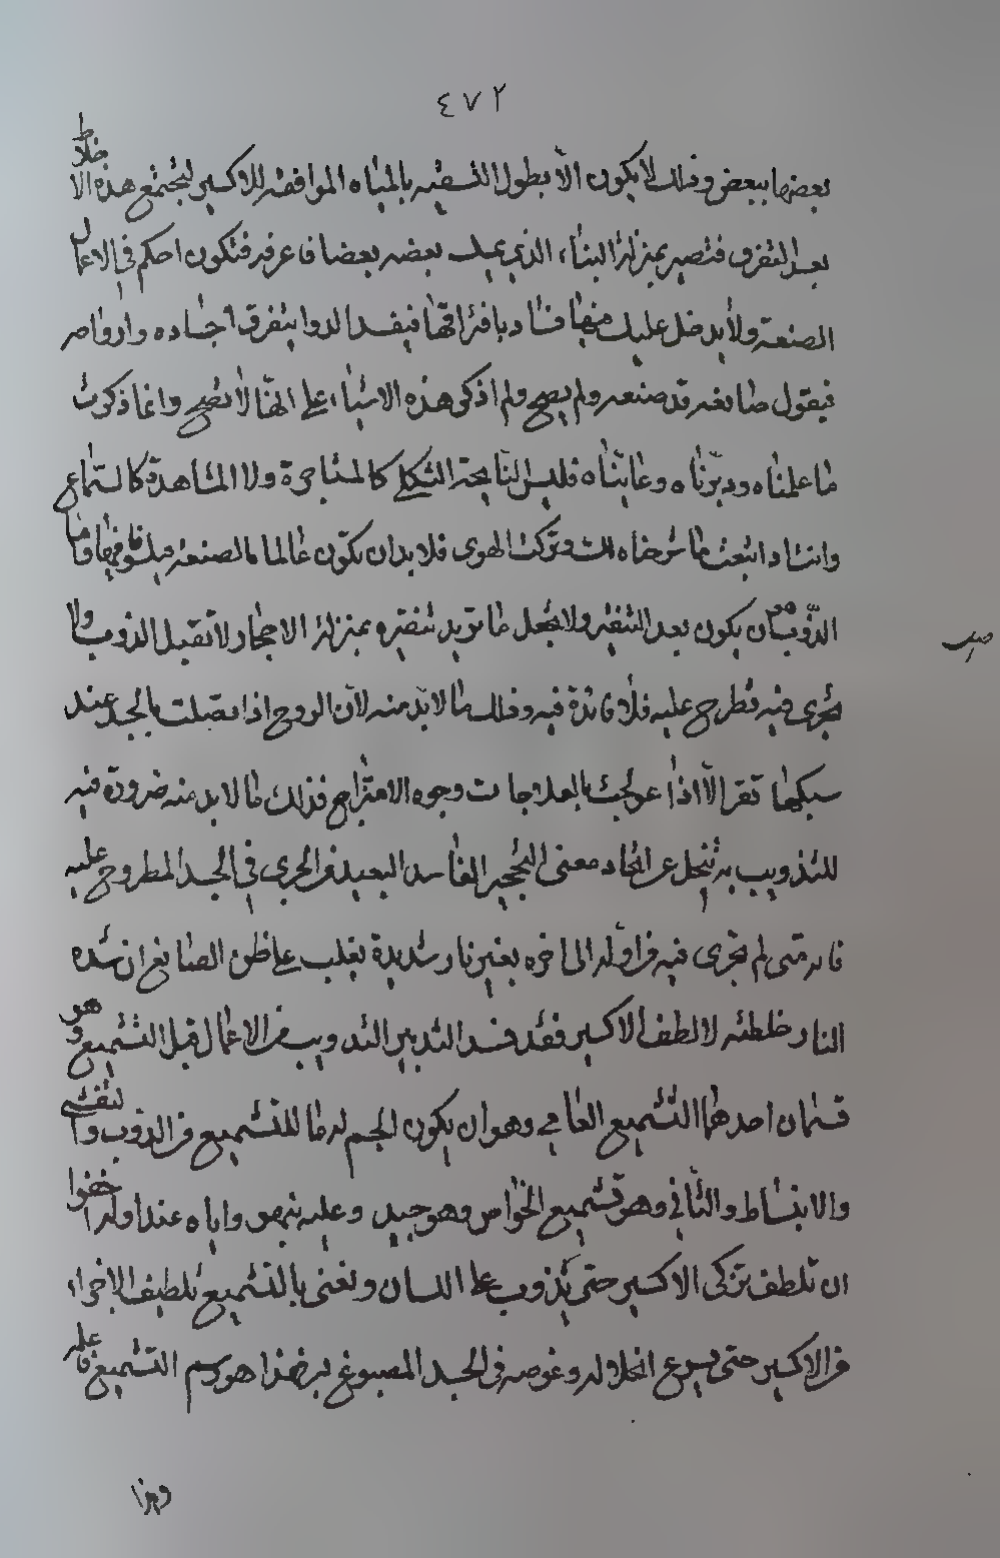 ٤٧٢
بعضها ببعض وذلك لا يكون الا بطول التسقيه بالمياه الموافقه للاكسير ليجتمع هذه الاخلاط
بعد التفرق فتصير بمنزلة البناء الذي يمسك بعضه بعضا فاعرفه فتكون احكم في الاعمال
الصنعة ولا يدخل عليك منها فساد بافتراقها فيفسد الدوا بتفرق اجساده وارواحه
فيقول صانعه قد صنعه ولم يصح ولم اذكر هذه الاشياء على انها لا تصح وانما ذكرت
ما علمناه ودبرناه وعايناه فليس النايحة الثكلى كالمستاجرة ولا المشاهدة كالسماع
وانت اذا اتبعت ما شرحناه لك وتركت الهوى فلا بد ان تكون عالما بالصنعه فيلسوفا فيها واما
الذوب فهو ان يكون بعد التشقيه ولا يجعل ما تريد بمنزلة الاحجار لا تقبل الذوب ولا
يجرى فيه فطرح عليه فلا فائدة فيه وذلك ما لا بد منه لان الروح اذا اتصلت بالجسد عند
سبكها تفر الا اذا عولجت بالعلاجات وجوه الامتزاج فذلك ما لا بد منه ضرورة فيه
للتذويب به ينحل عن اتحاد معنى التحجير الفاسد البعيد من الجرى في الجسد المطروح عليه
فانه متى لم يجرى فيه من اوله الى اخره بغير نار شديدة يغلب على ظن الصانع ان شده
النار خلطته لا لطف الاكسير فقد فسد التدبير التذويب من الاعمال قبل التشميع وهو
قسمان احدهما التشميع العامي وهو ان يكون الجسم له ما للتشميع من الذوب والتفشى
والانبساط والثاني وهو تشميع الخواص وهو جيد وعليه نبهو واياه عند اوله اخفوا
ان تلطف تزكى الاكسير حتى يذوب على اللسان ونعنى بالتشميع تلطيف الاجزاء
من الاكسير حتى يسرع انحلاله وغوصه في الجسد المصبوغ به فهذا هو رسم التشميع فاعلمه
وهذا